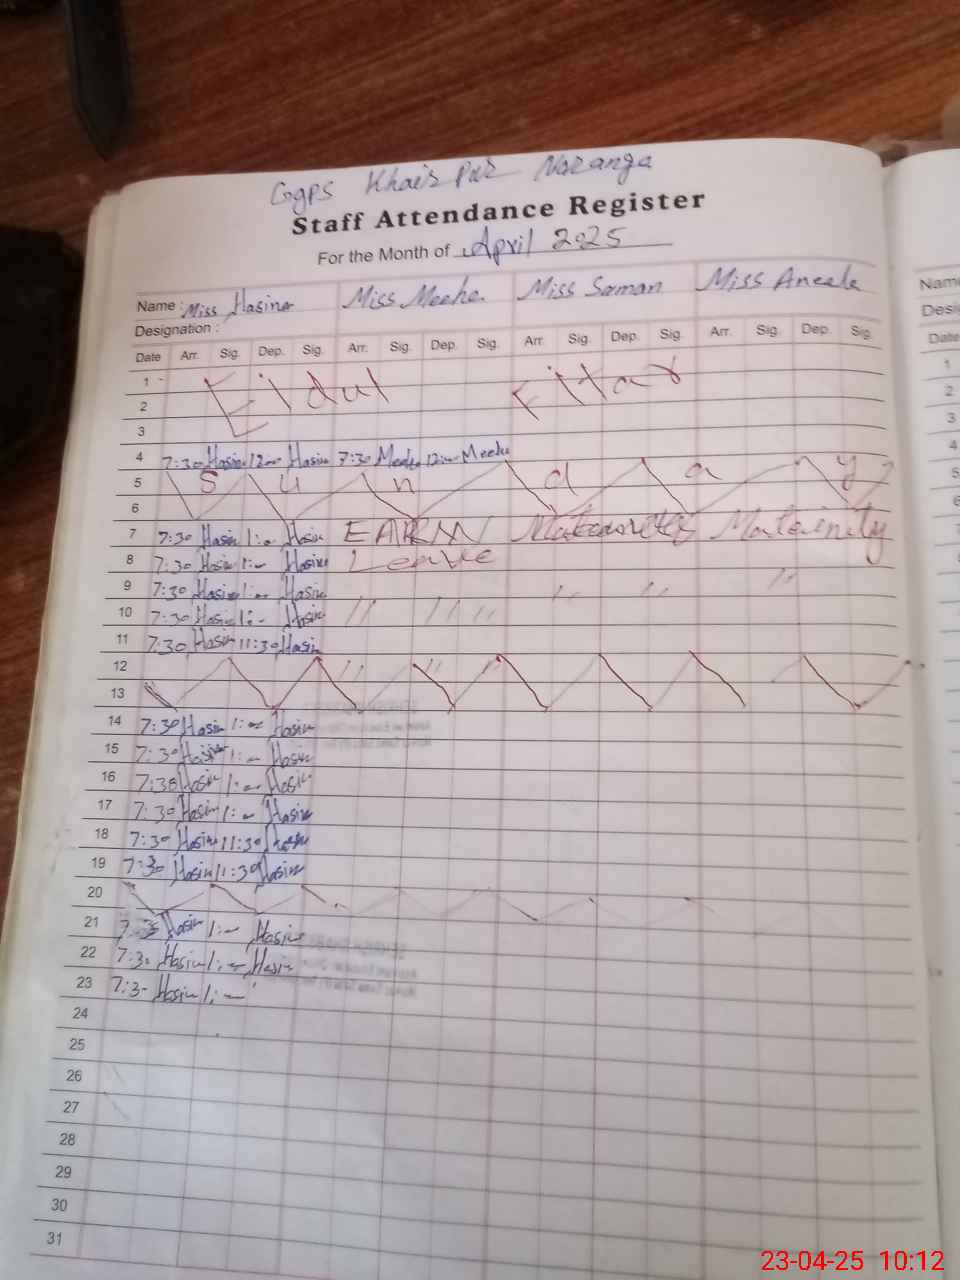 Ggps Khair Pur Noranga
Staff Attendance Register
For the Month of April 2025
Name : Miss Hasina Miss Meeha Miss Saman Miss Aneela
Designation :
Date Arr. Sig. Dep. Sig. Arr. Sig. Dep. Sig. Arr. Sig. Dep. Sig. Arr. Sig. Dep. Sig.
1 Eidul Fitar
2
3
4 7:30 Hasin 12:- Hasin 7:30 Meeha 12:- Meeha
5 S u n d a y
6
7 7:30 Hasin 1:- Hasin EARN Maternity Mataindty
8 7:30 Hasin 1:- Hasin Leave
9 7:30 Hasin 1:- Hasin " " "
10 7:30 Hasin 1:- Hasin " " "
11 7:30 Hasin 11:30 Hasin
12 " " "
13
14 7:30 Hasin 1:- Hasin
15 7:30 Hasin 1:- Hasin
16 7:30 Hasin 1:- Hasin
17 7:30 Hasin 1:- Hasin
18 7:30 Hasin 11:30 Hasin
19 7:30 Hasin 11:30 Hasin
20
21 Hasin 1:- Hasin
22 7:3- Hasin 1:- Hasin
23 7:3- Hasin 1:-
24
25
26
27
28
29
30
31
Name
Desig
Date
1
2
3
4
5
6
7
8
9
10
11
23-04-25 10:12